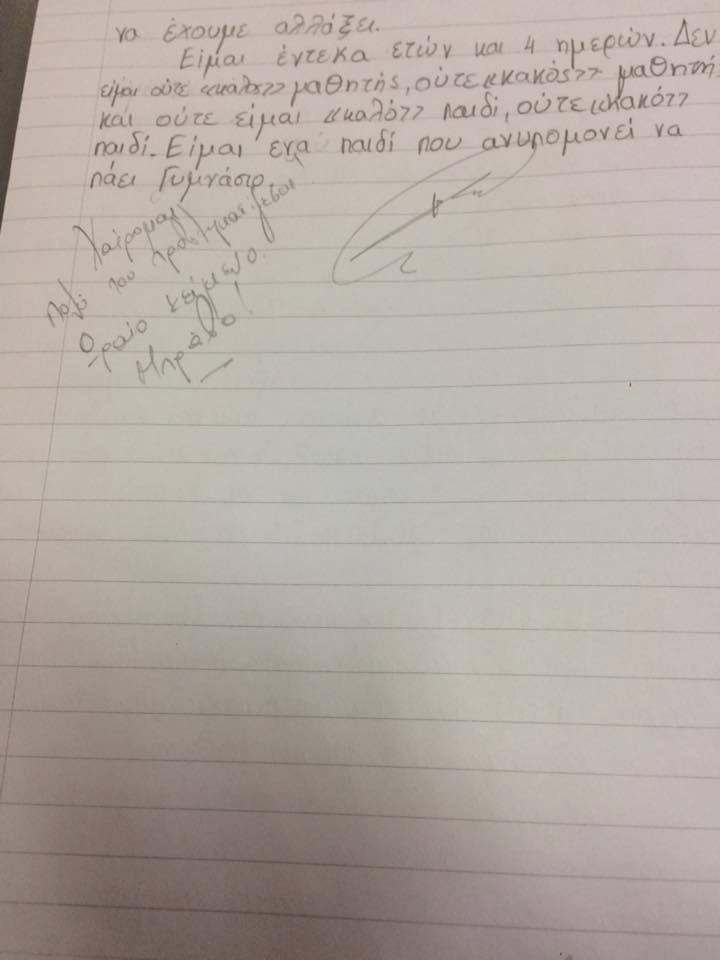 να έχουμε αλλάξει.
Είμαι έντεκα ετών και 4 ημερών. Δεν
είμαι ούτε «καλός» μαθητής, ούτε «κακός» μαθητή
και ούτε είμαι «καλό» παιδί, ούτε «κακό»
παιδί. Είμαι ενα παιδί που ανυπομονεί να
πάει Γυμνάσιο.
Χαίρομαι
πολύ που προβληματίζεσαι
Ωραίο κείμενο.
Μπράβο!